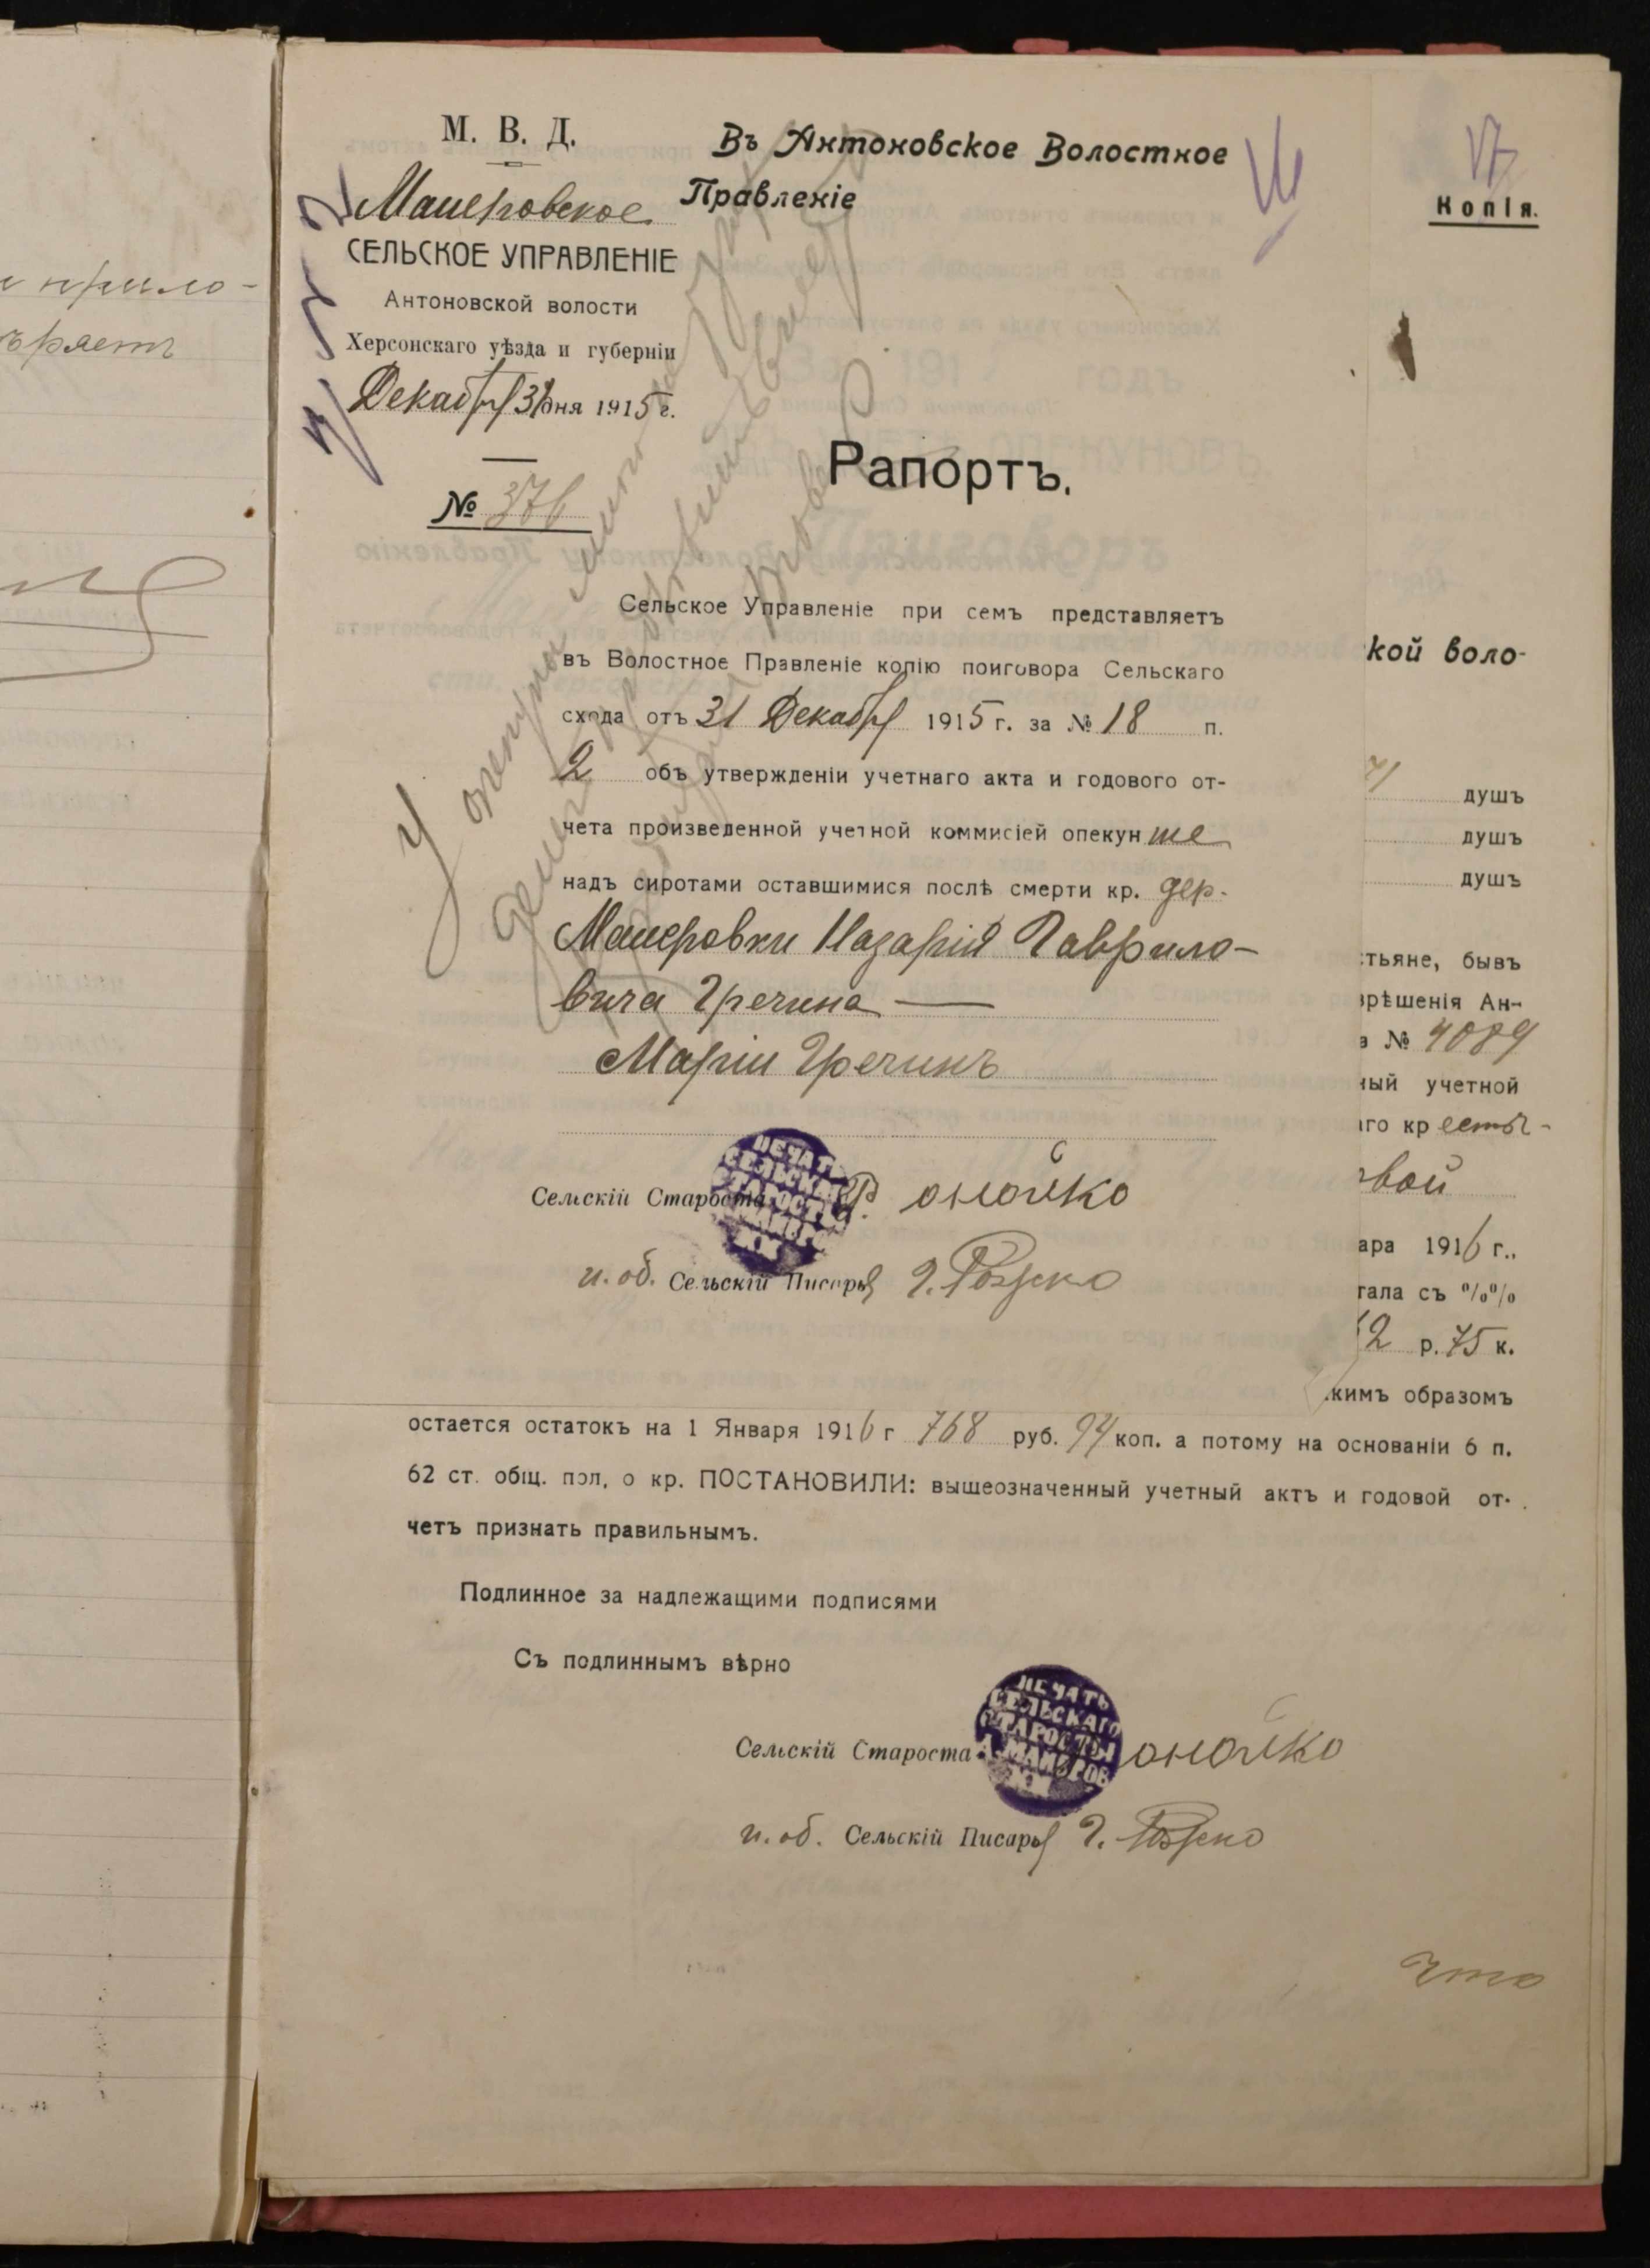 и прило-
ъряетъ
М. В. Д.
Маиеровское
СЕЛЬСКОЕ УПРАВЛЕНІЕ
Антоновской волости
Херсонскаго уѣзда и губерніи
Декабря 31 дня 1915 г.
№ 376
Въ Антоновское Волостное
Правленіе
17
Копія.
Рапортъ.
Сельское Управленіе при семъ представляетъ
въ Волостное Правленіе копію поиговора Сельскаго
схода отъ 31 Декабря 1915 г. за № 18 п.
2 объ утвержденіи учетнаго акта и годового от-
чета произведенной учетной коммисіей опекунше
надъ сиротами оставшимися послѣ смерти кр. дер.
Маиеровки Назарія Гаврило-
вича Гречина —
Маріи Гречинъ
ПЕЧАТЬ СЕЛЬСКАГО СТАРОСТЫ
Сельскій Староста онойко
и. об. Сельскій Писаря
кой воло-
душъ
душъ
душъ
тьяне, бывъ
зрѣшенія Ан-
а № 4089
ный учетной
аго крестья-
вой
аря 1916 г.,
тала съ %%
2 р. 75 к.
кимъ образомъ
остается остатокъ на 1 Января 1916 г 768 руб. 94 коп. а потому на основаніи 6 п.
62 ст. общ. пол, о кр. ПОСТАНОВИЛИ: вышеозначенный учетный актъ и годовой от-
четъ признать правильнымъ.
Подлинное за надлежащими подписями
Съ подлиннымъ вѣрно
ПЕЧАТЬ СЕЛЬСКАГО СТАРОСТЫ
Сельскій Староста онойко
и. об. Сельскій Писаря
что